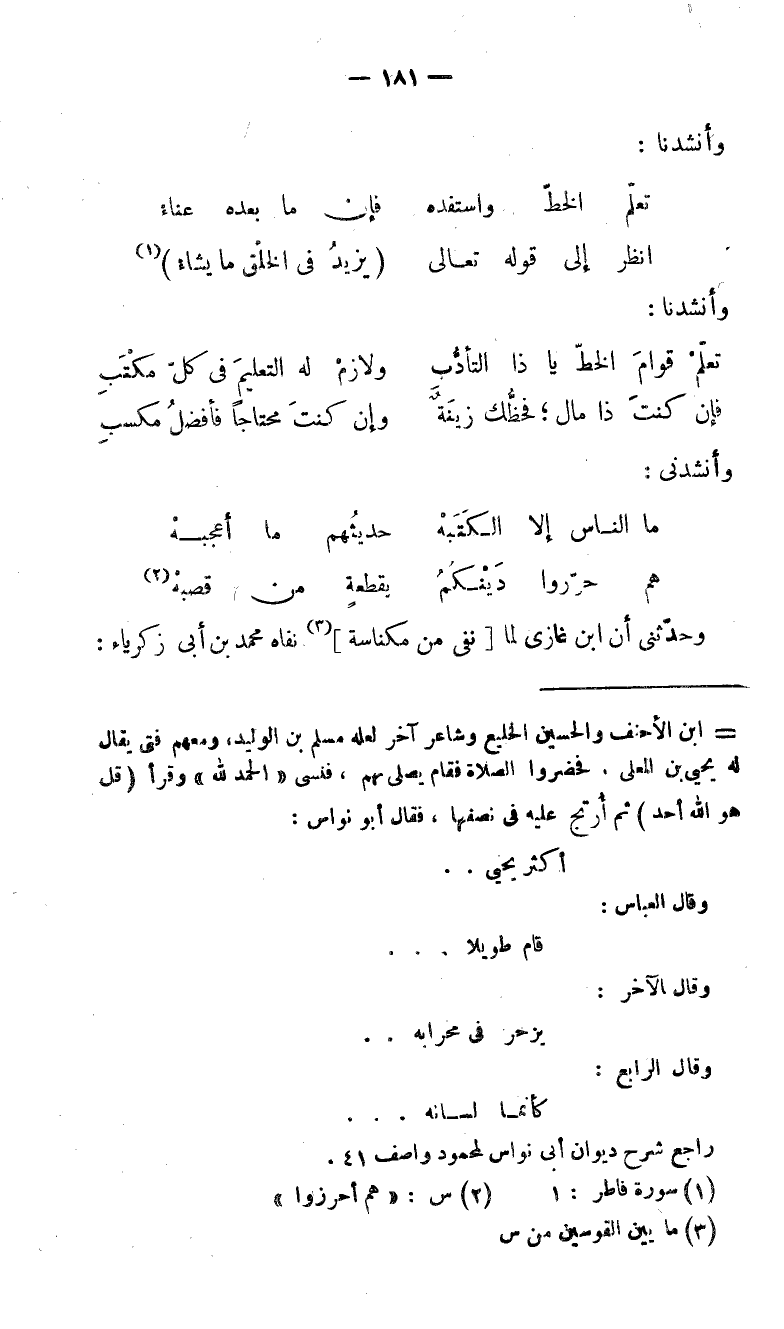 — ١٨١ —
وأنشدنا :
تعلّم الخطّ واستفده فإن ما بعده عناء
انظر إلى قوله تعالى ( يزيدُ فى الخلْق ما يشاء )(١)
وأنشدنا :
تعلّمْ قوامَ الخطّ يا ذا التأدُّبِ ولازمْ له التعليمَ فى كلّ مكْتَبِ
فإن كنتَ ذا مال ؛ فحظُّك زينَةٌ وإن كنتَ محتاجاً فأفضلُ مكسبِ
وأنشدنى :
ما النـاس إلا الـكَتَبهْ حديثُهم ما أعجبـهْ
هم حرّروا دَيْنـكُمُ بقطعةٍ من قصبهْ(٢)
وحدّثنى أن ابن غازى لما [ نفى من مكناسة ](٣) نفاه محمد بن أبى زكرياء :
= ابن الأحنف والحسين الخليع وشاعر آخر لعله مسلم بن الوليد، ومعهم فتى يقال
له يحيى بن المعلى . فحضروا الصلاة فقام يصلى بهم ، فنسى « الحمد لله » وقرأ ( قل
هو الله أحد ) ثم أُرتج عليه فى نصفها ، فقال أبو نواس :
أكثر يحيى . .
وقال العباس :
قام طويلا . . .
وقال الآخر :
يزحر فى محرابه . .
وقال الرابع :
كأنمـا لسـانه . . .
راجع شرح ديوان أبى نواس لمحمود واصف ٤١ .
(١) سورة فاطر : ١ (٢) س : « هم أحرزوا »
(٣) ما بين القوسين من س